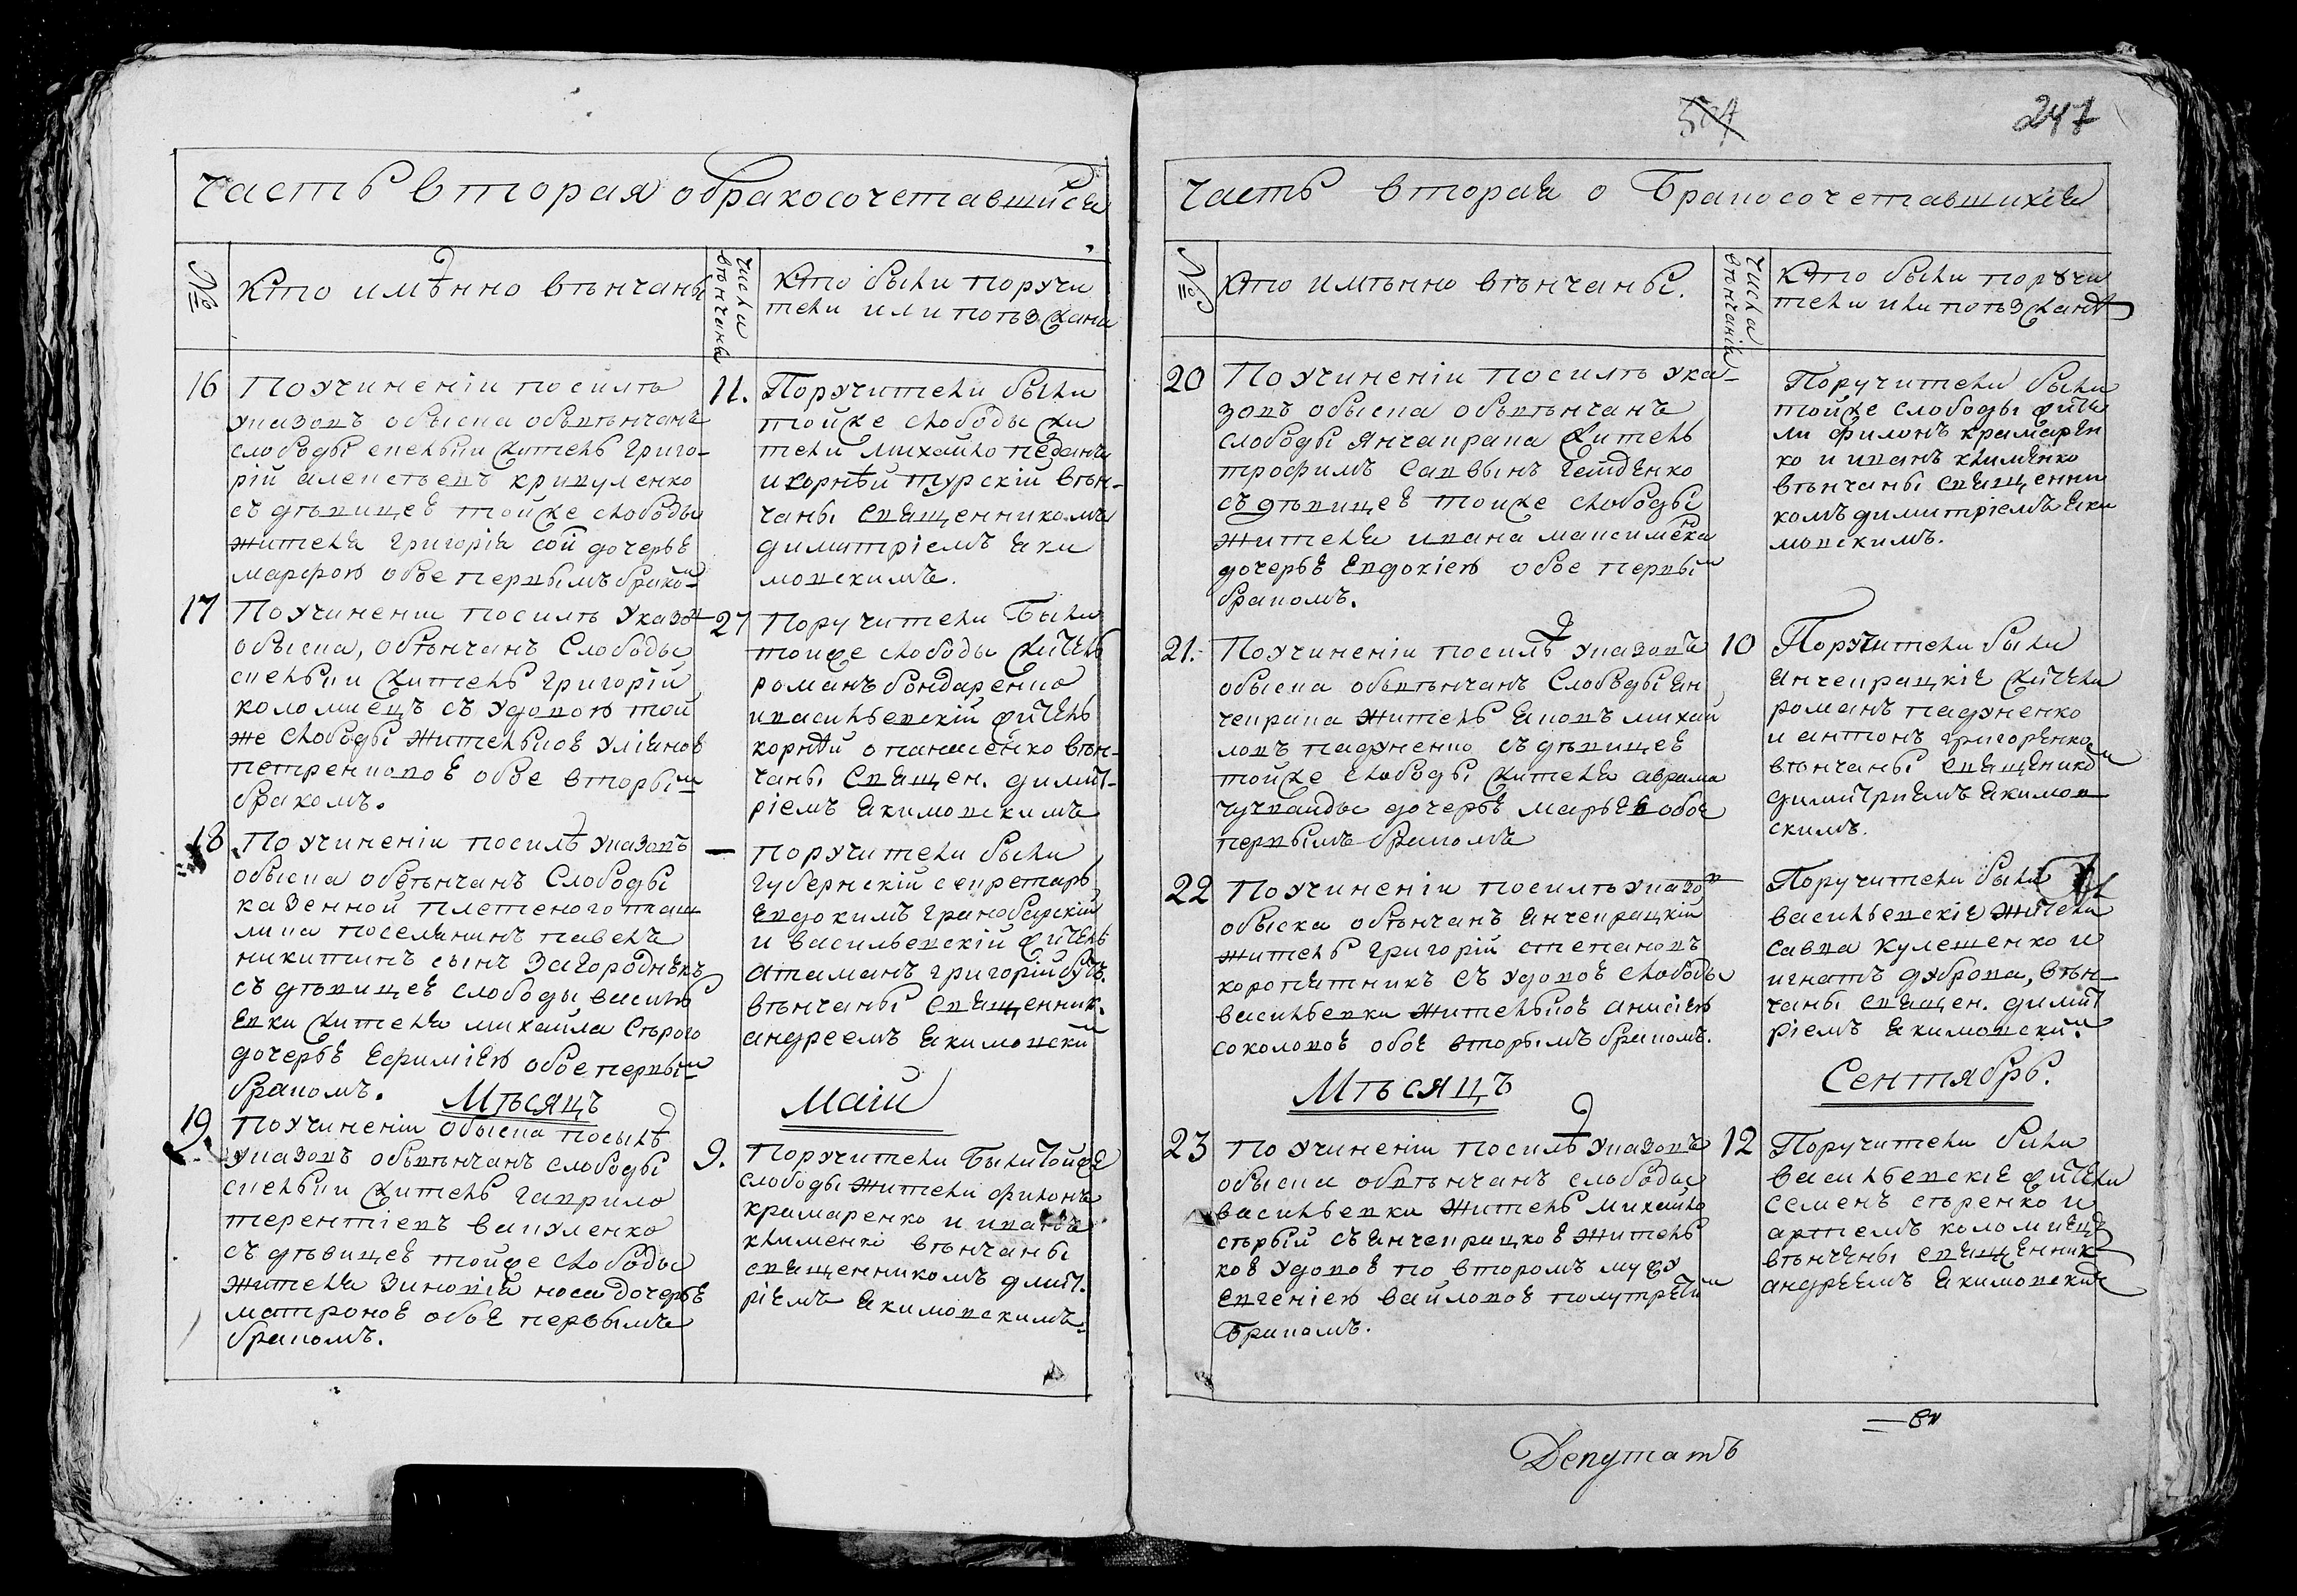 247
часть вторая обракосочетавшийся
№
Кто имѣнно вѣнчаны
числа вѣнчаны
Кто были поручи
тели или поѣзжана
16
По учиненіи посилѣ
указовъ обыска обвѣнчанъ
слободы скельки житель Григо-
рій алексѣевъ кривуленко
съ дѣвицеє тойже слободы
жителя Григорія сой дочерьє
марфою обое первымъ браком
11.
Поручители были
тойже слободы жи
тели михайло педанъ
и корнѣй турскій вѣн-
чаны священникомъ
димитріемъ яки
мовскимъ.
17
По учинении посилѣ указов
обыска, обвѣнчанъ Слободы
скельки житель григорій
коломиецъ съ удовою той
же слободы жителькоє уліяноє
петренковоє обоє вторым
бракомъ.
27
Поручители были
тойже слободы житель
романъ бондаренко
и васильевскій житель
корнѣй опанасенко вѣн-
чаны священ. димит-
ріемъ якимовскимъ
18
По учинении посилѣ указовъ
обыска обвѣнчанъ Слободы
казенной плетеного таш
лика поселянинъ павелъ
никитинъ сынъ Загороднѣкъ
съ дѣвицеє слободы василь
євки жителя михайла Сѣрого
дочерьє Єфиміею обое первым
бракомъ.
—
поручители были
Губернскій секретарь
Евдокимъ грановскій
и васильевскій житель
Атаманъ григорій бутъ.
вѣнчаны священник.
андреемъ якимовским
Мѣсяцъ
Маій
19.
По учинении обыска посилѣ
указовъ обвѣнчанъ слободы
скельки житель гаврило
терентіевъ вакуленко
съ дѣвицеє тойже слободы
жителя зиновія носа дочерьє
матроноє обоє первымъ
бракомъ.
9.
Поручители были тойже
слободы жители филонъ
крамаренко и иванъ
клименко вѣнчаны
священникомъ димит.
ріемъ якимовскимъ.
247
часть вторая о Бракосочетавшихся
№
Кто имѣнно вѣнчаны.
числа вѣнчанія
Кто были поручи
тели или поѣзжане
20
По учиненіи посилѣ ука-
зовъ обыска обвѣнчанъ
слободы янчакрака житель
трофимъ саввынъ гейденко
съ дѣвицеє тоиже слободы
жителя ивана максименка
дочерьє Євдокією обое первым
бракомъ.
Поручители были
тойже слободы жите
ли филонъ крамарен
ко и иванъ клименко
вѣнчаны священни
комъ димитріемъ яки
мовскимъ.
21.
По учиненіи посилѣ указовъ
обыска обвѣнчанъ Слободы ян
чекрака житель яковъ михай
ловъ падуненко съ дѣвицеє
тойже слободы жителя аврама
чучвайды дочерьє марьєю обоє
первымъ бракомъ
10
Поручители были
янчекрацкіє жители
романъ падуненко
и антонъ григоренко
вѣнчаны священником
димитриемъ якимов
скимъ.
22
По учиненіи посилѣ указов
обыска обвѣнчанъ янчекрацкій
житель григорій степановъ
коропятникъ съ удовоє слободы
васильевки жителькоє анисією
соколовоє обоє вторымъ бракомъ.
Поручители были
васильевскіє жители
савва кулешенко и
игнатъ дуброва, вѣн-
чаны священ. димит
ріемъ якимовским.
Мѣсяцъ
Сентябрь.
23
По учиненіи посилѣ указовъ
обыска обвѣнчанъ слободы
васильевки житель михайло
сѣрый съ янчекрацкоє житель
коє удовоє по второмъ мужу
євгенією вайловоє полутретим
бракомъ.
12
Поручители были
васильевскіє жители
семенъ сѣренко и
артемъ коломиецъ
вѣнчены священник
андрѣемъ якимовским
Депутатъ